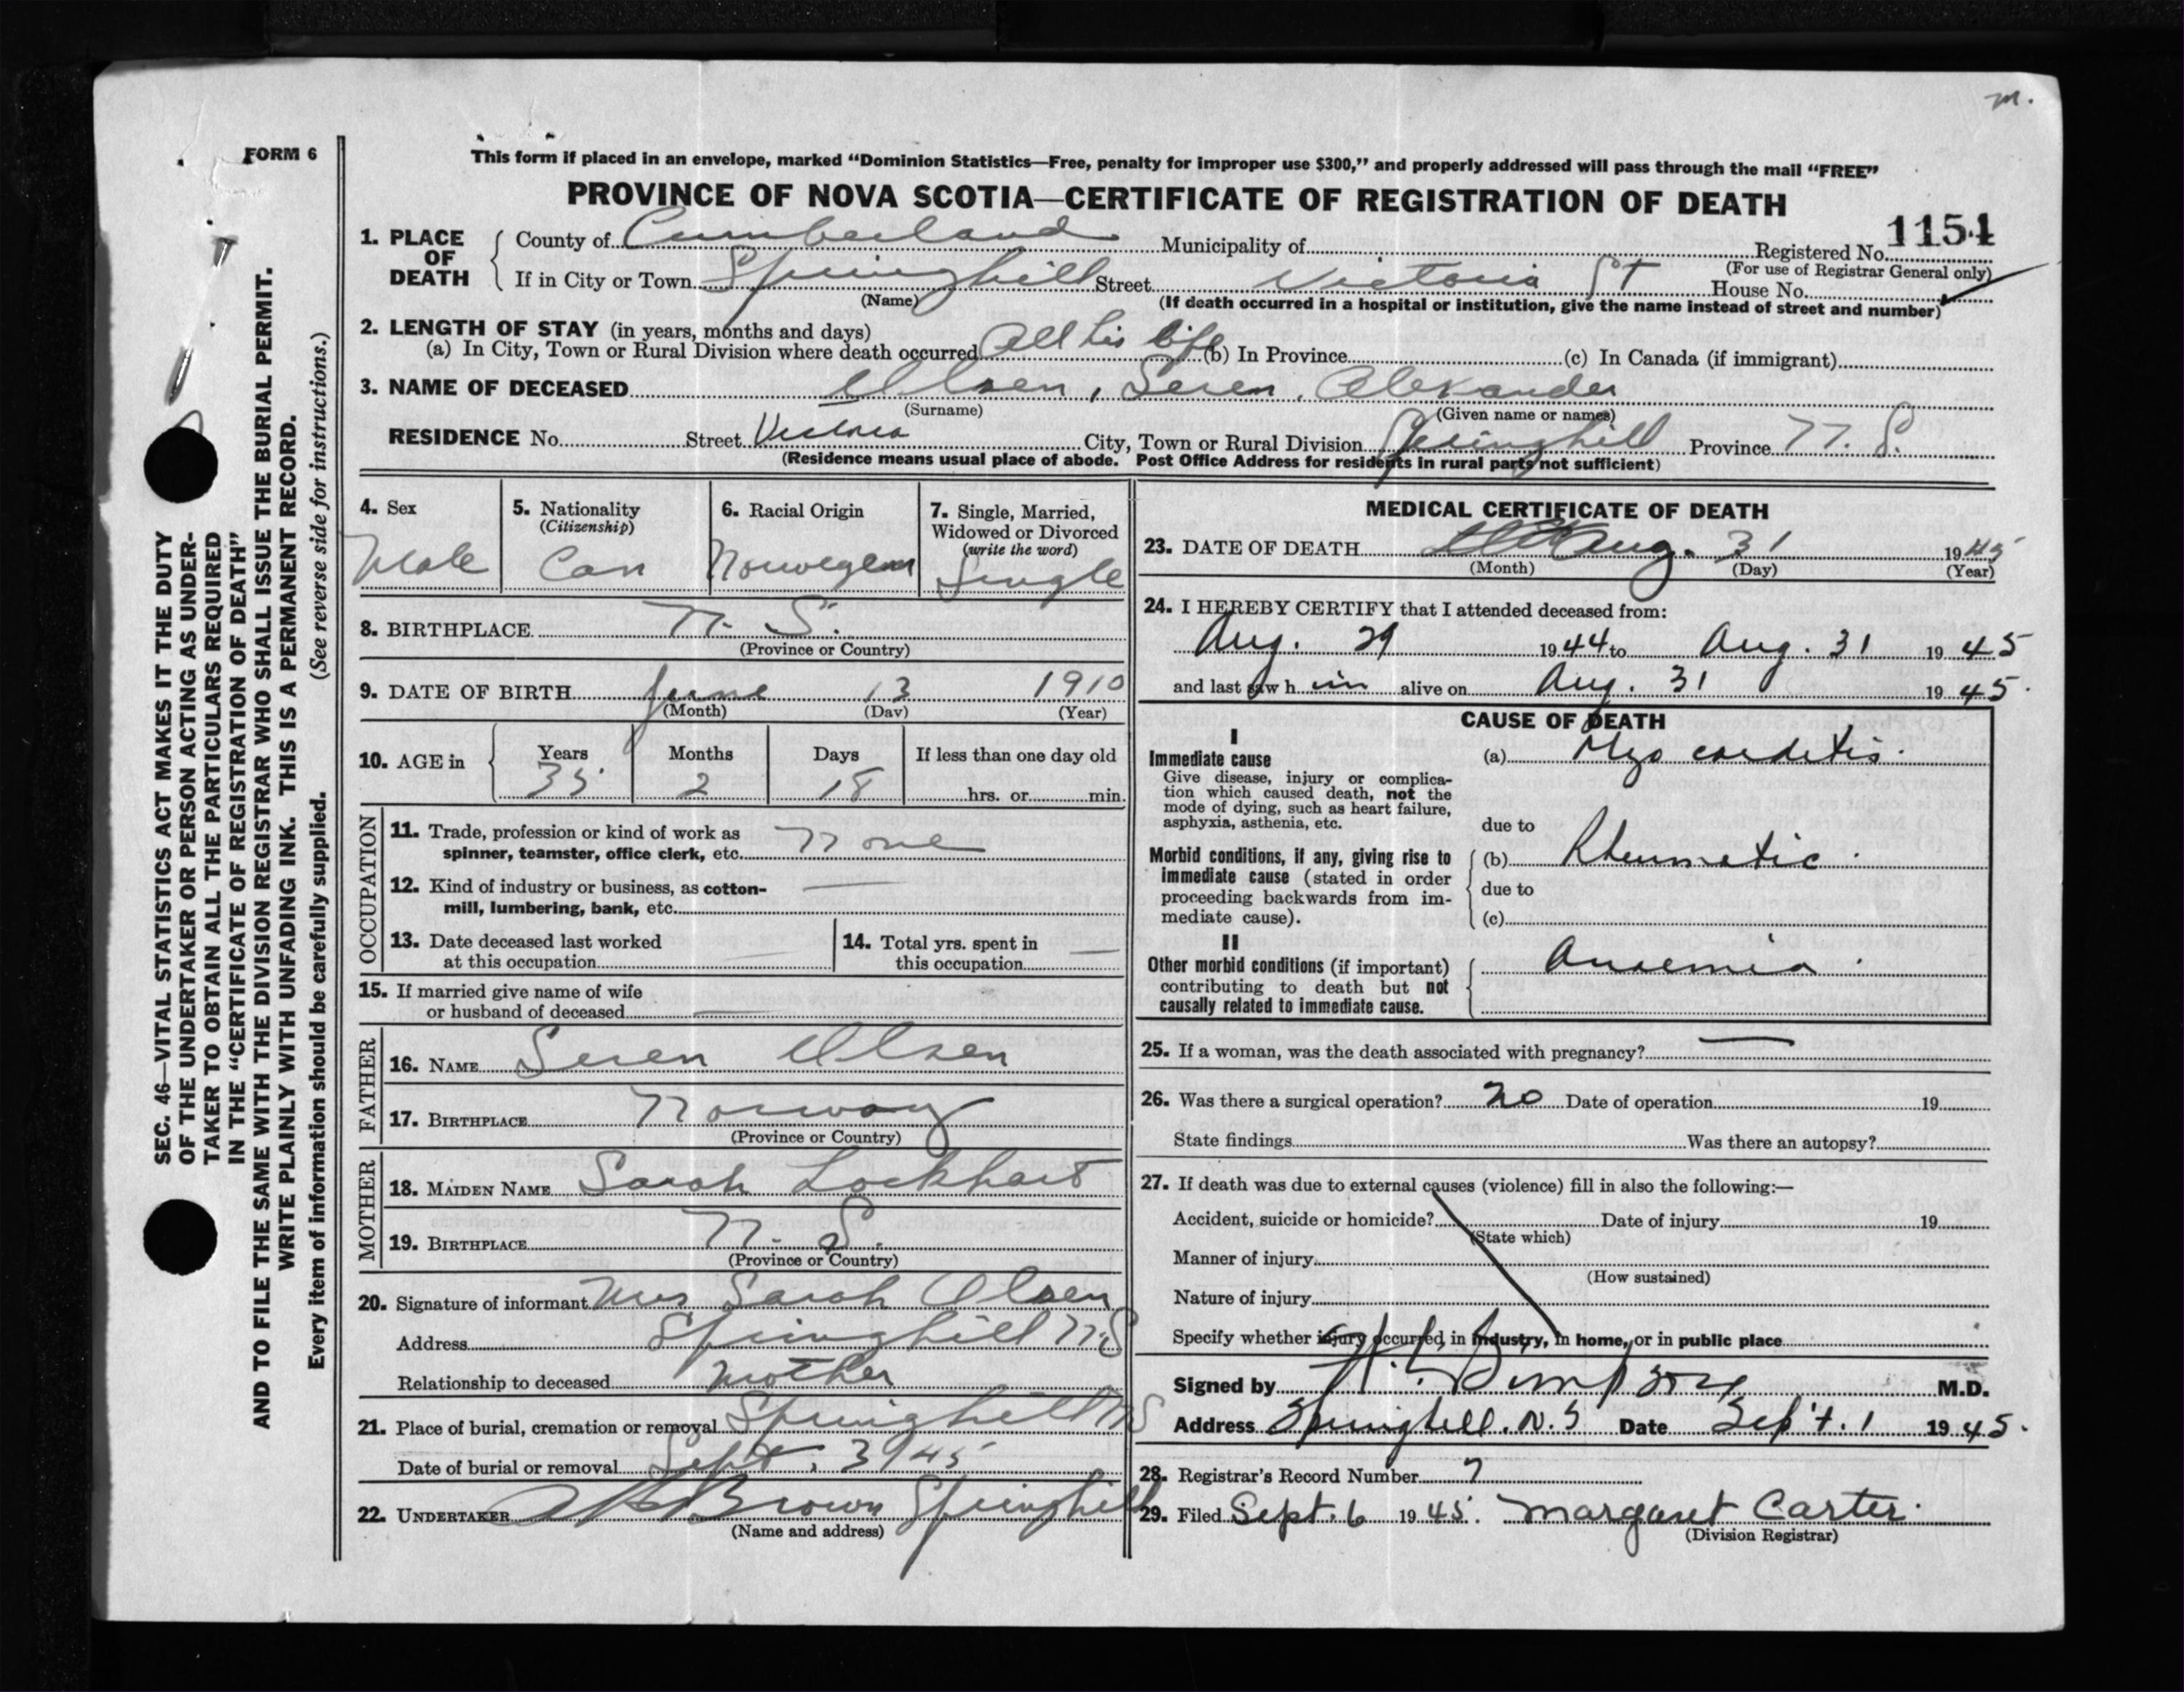 m.
FORM 6
This form if placed in an envelope, marked “Dominion Statistics—Free, penalty for improper use $300,” and properly addressed will pass through the mail “FREE”
PROVINCE OF NOVA SCOTIA—CERTIFICATE OF REGISTRATION OF DEATH
1154
1. PLACE OF DEATH
County of Cumberland Municipality of Registered No.
(For use of Registrar General only)
If in City or Town Springhill Street Victoria St House No.
(Name) (If death occurred in a hospital or institution, give the name instead of street and number)
2. LENGTH OF STAY (in years, months and days)
(a) In City, Town or Rural Division where death occurred All his life (b) In Province (c) In Canada (if immigrant)
3. NAME OF DECEASED Olsen, Seren, Alexander
(Surname) (Given name or names)
RESIDENCE No. Street Victoria City, Town or Rural Division Springhill Province N. S.
(Residence means usual place of abode. Post Office Address for residents in rural parts not sufficient)
4. Sex
Male
5. Nationality
(Citizenship)
Can
6. Racial Origin
Norwegen
7. Single, Married,
Widowed or Divorced
(write the word)
Single
8. BIRTHPLACE N. S.
(Province or Country)
9. DATE OF BIRTH June 13 1910
(Month) (Day) (Year)
10. AGE in
Years Months Days If less than one day old
35 2 18 hrs. or min.
OCCUPATION
11. Trade, profession or kind of work as
spinner, teamster, office clerk, etc. None
12. Kind of industry or business, as cotton-
mill, lumbering, bank, etc.
13. Date deceased last worked
at this occupation
14. Total yrs. spent in
this occupation
15. If married give name of wife
or husband of deceased
FATHER
16. NAME Seren Olsen
17. BIRTHPLACE Norway
(Province or Country)
MOTHER
18. MAIDEN NAME Sarah Lockhart
19. BIRTHPLACE N. S.
(Province or Country)
20. Signature of informant Mrs Sarah Olsen
Address Springhill N.S
Relationship to deceased Mother
21. Place of burial, cremation or removal Springhill NS
Date of burial or removal Sept. 3 1945
22. UNDERTAKER Brown Springhill
(Name and address)
MEDICAL CERTIFICATE OF DEATH
23. DATE OF DEATH Aug. 31 1945
(Month) (Day) (Year)
24. I HEREBY CERTIFY that I attended deceased from:
Aug. 29 1944 to Aug. 31 1945
and last saw him alive on Aug. 31 1945.
CAUSE OF DEATH
I
Immediate cause
Give disease, injury or complica-
tion which caused death, not the
mode of dying, such as heart failure,
asphyxia, asthenia, etc.
(a) Myo carditis.
due to
Morbid conditions, if any, giving rise to
immediate cause (stated in order
proceeding backwards from im-
mediate cause).
(b) Rheumatic.
due to
(c)
II
Other morbid conditions (if important)
contributing to death but not
causally related to immediate cause.
Anaemia.
25. If a woman, was the death associated with pregnancy?
26. Was there a surgical operation? no Date of operation 19
State findings Was there an autopsy?
27. If death was due to external causes (violence) fill in also the following:—
Accident, suicide or homicide? Date of injury 19
(State which)
Manner of injury
(How sustained)
Nature of injury
Specify whether injury occurred in industry, in home, or in public place
Signed by Simpson M.D.
Address Springhill. N.S Date Sep't. 1 1945.
28. Registrar's Record Number 7
29. Filed Sept. 6 1945. Margaret Carter.
(Division Registrar)
SEC. 46—VITAL STATISTICS ACT MAKES IT THE DUTY
OF THE UNDERTAKER OR PERSON ACTING AS UNDER-
TAKER TO OBTAIN ALL THE PARTICULARS REQUIRED
IN THE “CERTIFICATE OF REGISTRATION OF DEATH”
AND TO FILE THE SAME WITH THE DIVISION REGISTRAR WHO SHALL ISSUE THE BURIAL PERMIT.
WRITE PLAINLY WITH UNFADING INK. THIS IS A PERMANENT RECORD.
Every item of information should be carefully supplied. (See reverse side for instructions.)